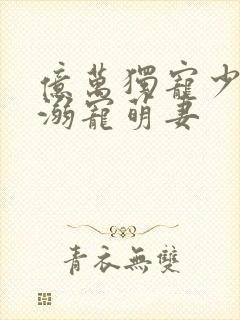 億萬獨寵少
溺寵萌妻
青衣無雙